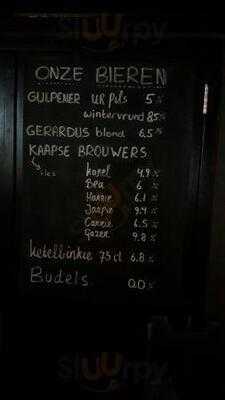 sluurpy
ONZE BIEREN
GULPENER UR Pils 5%
wintervrund 8.5%
GERARDUS blond 6.5%
KAAPSE BROUWERS
Karel 4.9%
Bea 6%
Harrie 6.1%
Jaapie 9.4%
Carrie 6.5%
Gozer 9.8%
ketelbinkie 75cl 6.8%
Budels 0.0%
sluurpy